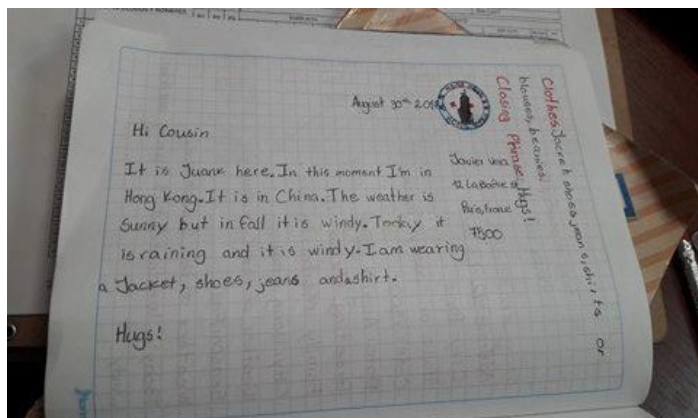 August 30th
Hi Cousin
It is Juank here. In this moment I'm in
Hong Kong. It is in China. The weather is
Sunny but in fall it is windy. Today it
is raining and it is windy. I am wearing
a Jacket, shoes, jeans andashirt.
Hugs!
Javier
12
Paris, France
7500
Clothes Jacket shoes, jeans, shirts or
blouses, beanies.
Closing Phrase Hugs!